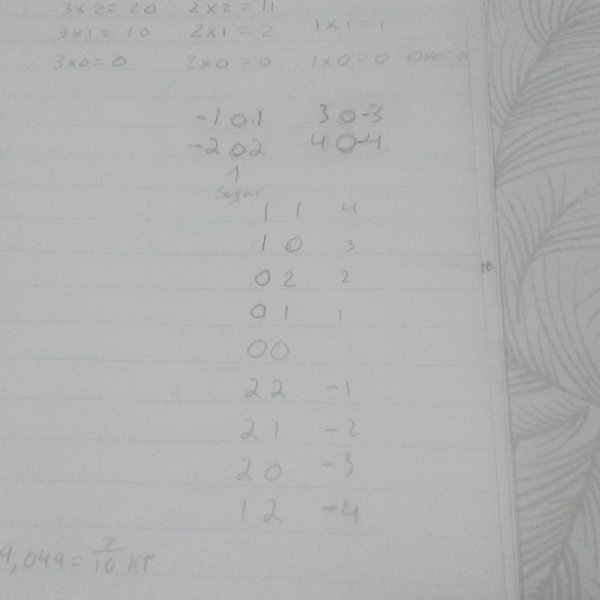 3x2=20 2x2=11
3x1=10 2x1=2 1x1=1
3x0=0 2x0=0 1x0=0 0x0=0
-1 0 1 3 0 -3
-2 0 2 4 0 -4
1
1 1 4
1 0 3
0 2 2
0 1 1
00
22 -1
21 -2
20 -3
12 -4
9,049=